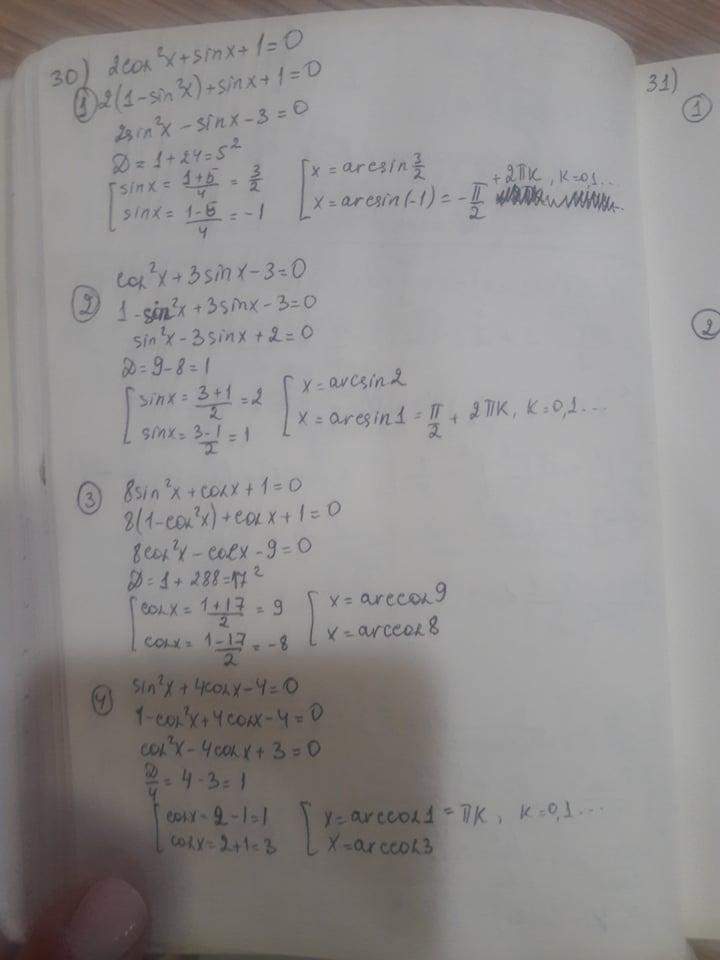 30) 2cos²x + sinx + 1 = 0
① 2(1 - sin²x) + sinx + 1 = 0
2sin²x - sinx - 3 = 0
D = 1 + 24 = 5²
[ sinx = (1+5)/4 = 3/2 [ x = arcsin 3/2
[ sinx = (1-5)/4 = -1 [ x = arcsin(-1) = -π/2 + 2πK, K=0,1...
② cos²x + 3sinx - 3 = 0
1 - sin²x + 3sinx - 3 = 0
sin²x - 3sinx + 2 = 0
D = 9 - 8 = 1
[ sinx = (3+1)/2 = 2 [ x = arcsin2
[ sinx = (3-1)/2 = 1 [ x = arcsin1 = π/2 + 2πK, K=0,1...
③ 8sin²x + cosx + 1 = 0
8(1 - cos²x) + cosx + 1 = 0
8cos²x - cosx - 9 = 0
D = 1 + 288 = 17²
[ cosx = (1+17)/2 = 9 [ x = arccos9
[ cosx = (1-17)/2 = -8 [ x = arccos8
④ sin²x + 4cosx - 4 = 0
1 - cos²x + 4cosx - 4 = 0
cos²x - 4cosx + 3 = 0
D/4 = 4 - 3 = 1
[ cosx = 2 - 1 = 1 [ x = arccos1 = πK, K=0,1...
[ cosx = 2 + 1 = 3 [ x = arccos3
31)
①
②